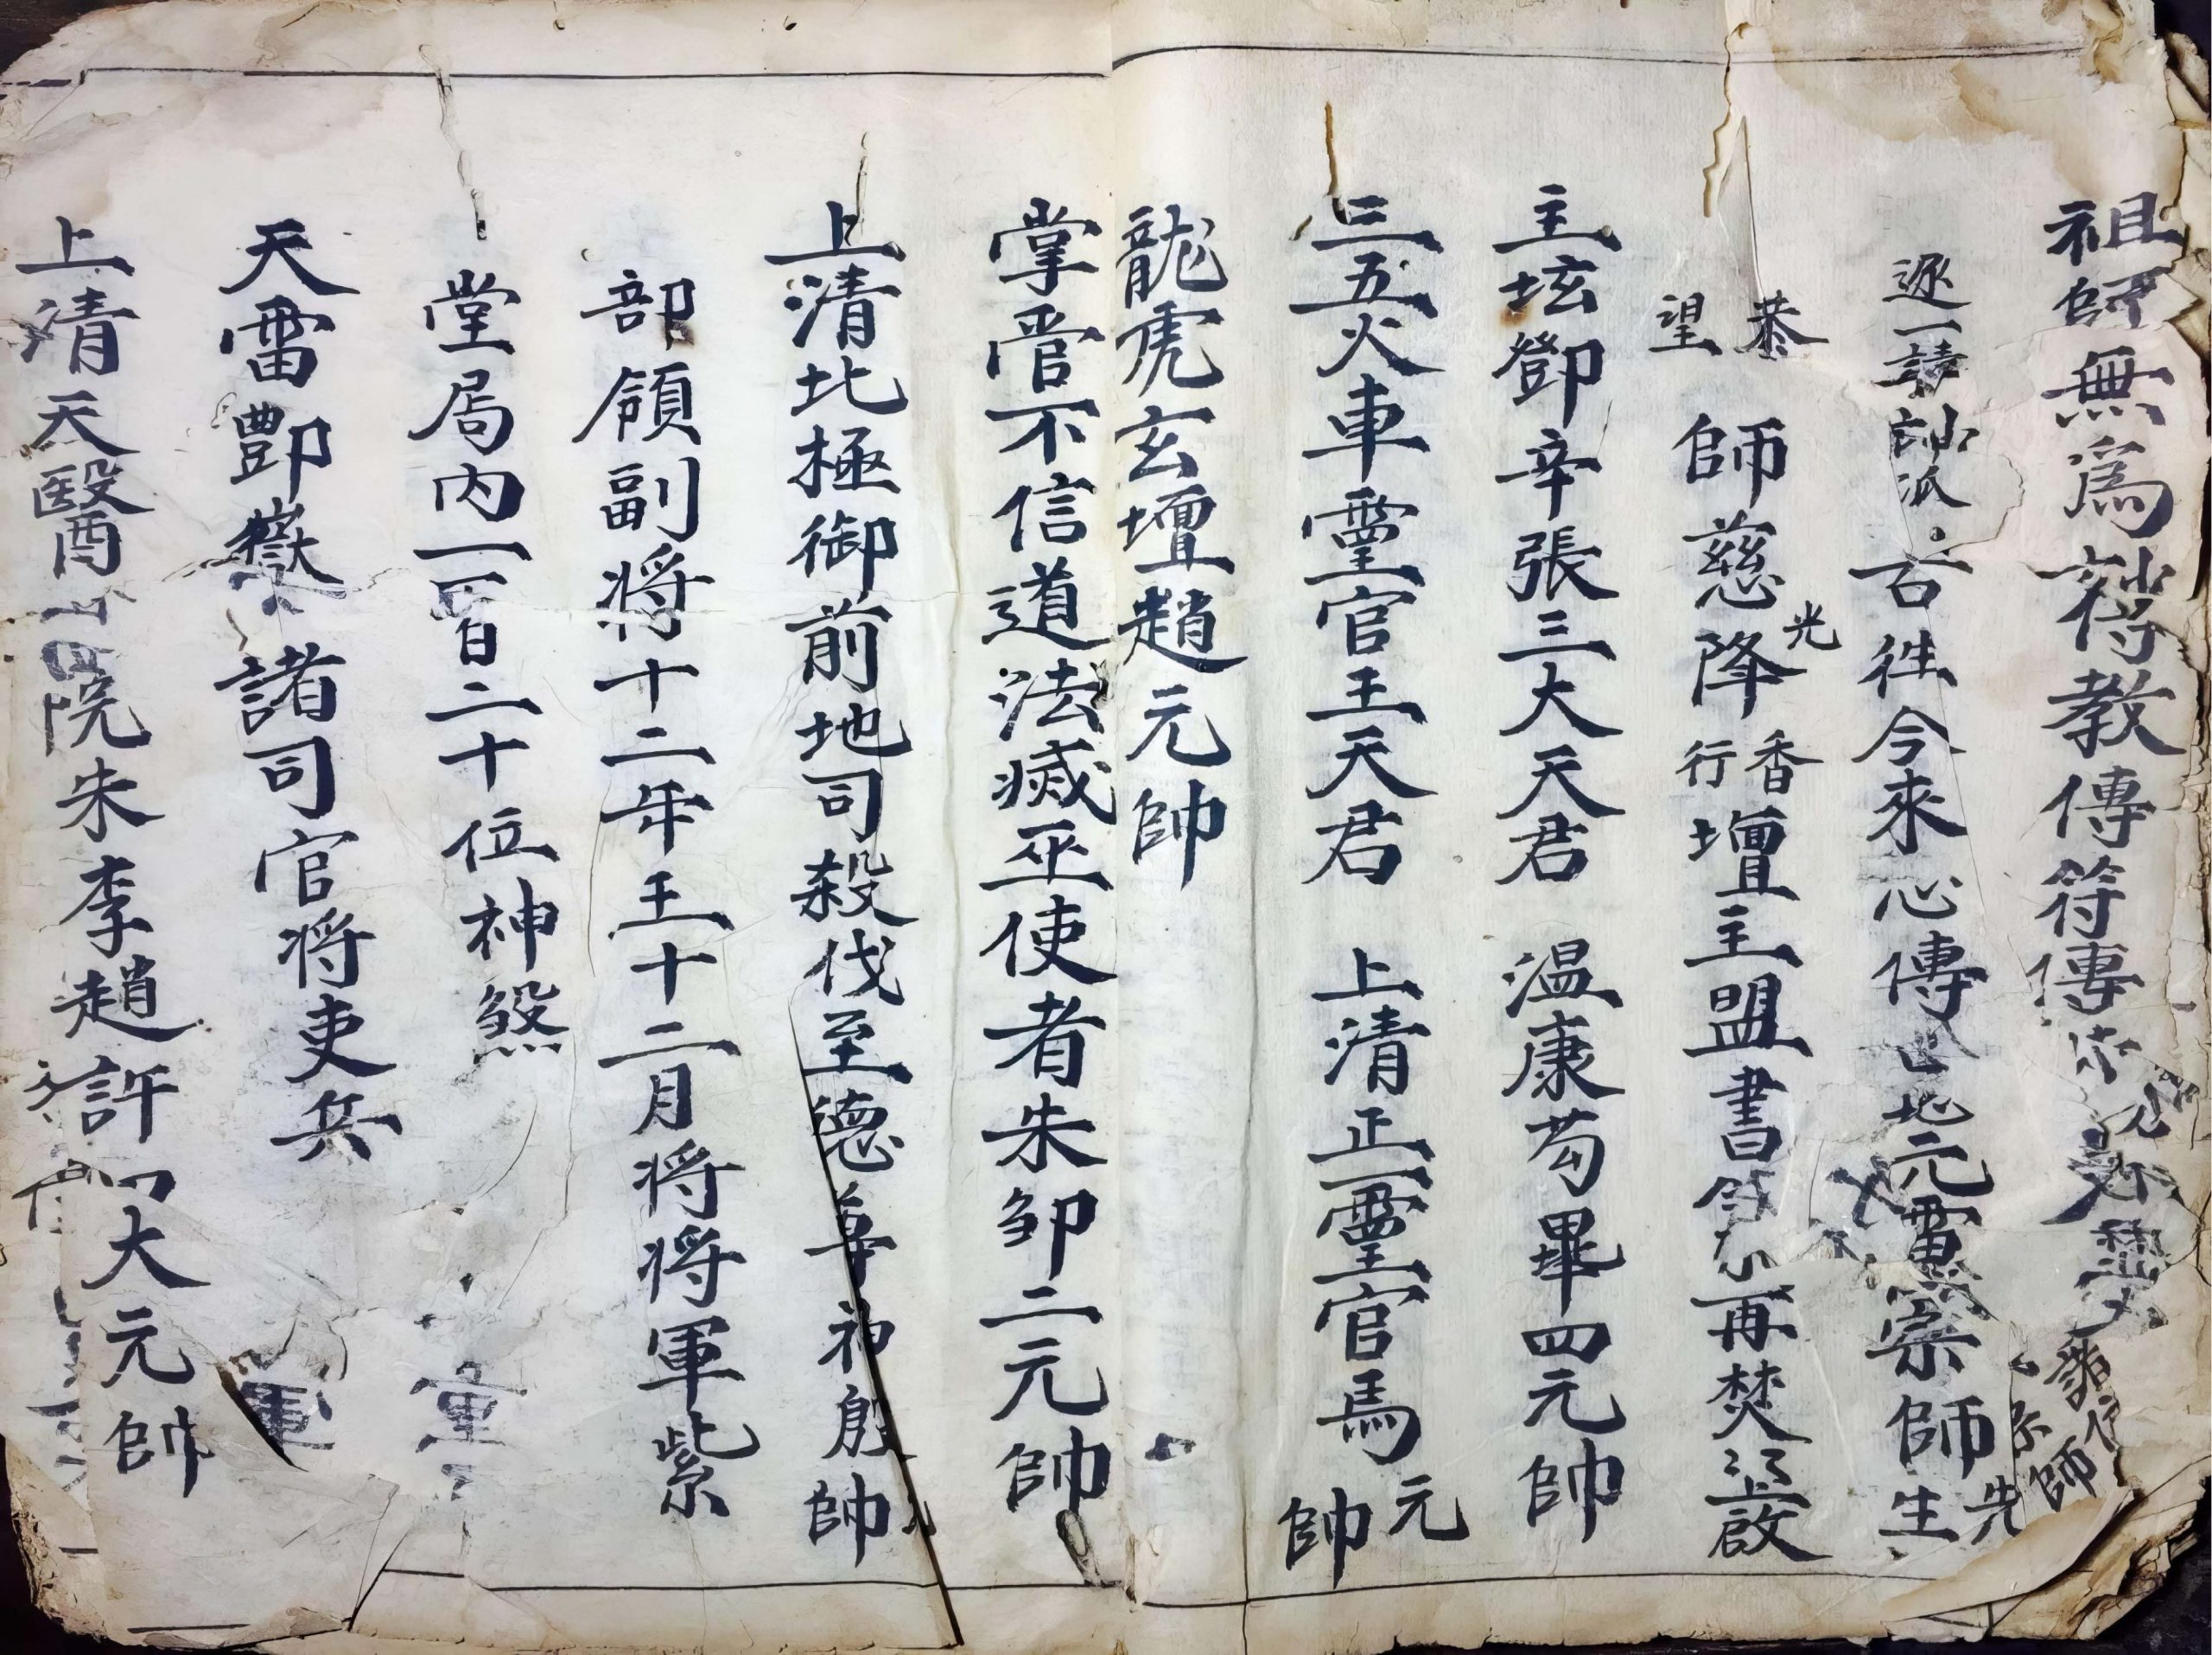 祖師無為
教傳符傳
逐一請
古往今來心傳
地元
宗師先生
恭望
師慈光降香行壇主盟書
再焚
啟
主坛鄧辛張三大天君 温康苟畢四元帥
三五火車靈官王天君 上清正一靈官馬元帥
龍虎玄壇趙元帥
掌管不信道法滅巫使者朱邹二元帥
上清北極御前地司殺伐至德尊神殷元帥
部領副将十二年王十二月将将軍紫
堂局内一百二十位神煞
天雷酆嶽諸司官将吏兵
上清天醫
院朱李趙許四大元帥